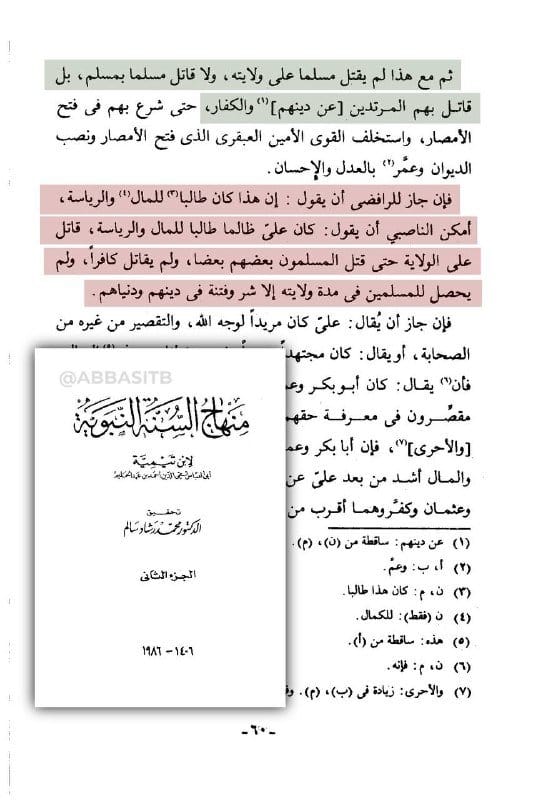 ثم مع هذا لم يقتل مسلما على ولايته، ولا قاتل مسلما بمسلم، بل
قاتل بهم المرتدين [عن دينهم](١) والكفار، حتى شرع بهم فى فتح
الأمصار، واستخلف القوى الأمين العبقرى الذى فتح الأمصار ونصب
الديوان وعمَّر(٢) بالعدل والإحسان.
فإن جاز للرافضى أن يقول : إن هذا كان طالبا(٣) للمال(٤) والرياسة،
أمكن الناصبي أن يقول: كان علىّ ظالما طالبا للمال والرياسة، قاتل
على الولاية حتى قتل المسلمون بعضهم بعضا، ولم يقاتل كافراً، ولم
يحصل للمسلمين فى مدة ولايته إلا شر وفتنة فى دينهم ودنياهم.
فإن جاز أن يُقال: علىّ كان مريداً لوجه الله، والتقصير من غيره من
الصحابة، أو يقال: كان مجتهداً
فأن(٦) يقال: كان أبو بكر وعم
مقصِّرون فى معرفة حقهم
[والأحرى](٧)، فإن أبا بكر وعم
والمال أشد من بعد علىّ عن
وعثمان وكفَّروهما أقرب من
@ABBASITB
منهاج السنة النبوية
لابن تيمية
أبي العباس تقي الدين أحمد بن عبد الحليم
تحقيق
الدكتور محمد رشاد سالم
الجزء الثانى
١٤٠٦ - ١٩٨٦
(١) عن دينهم: ساقطة من (ن)، (م).
(٢) أ، ب: وعمَّ.
(٣) ن، م: كان هذا طالبا.
(٤) ن (فقط): للكمال.
(٥) هذه: ساقطة من (أ).
(٦) ن، م: فإنه.
(٧) والأحرى: زيادة فى (ب)، (م).
-٦٠-